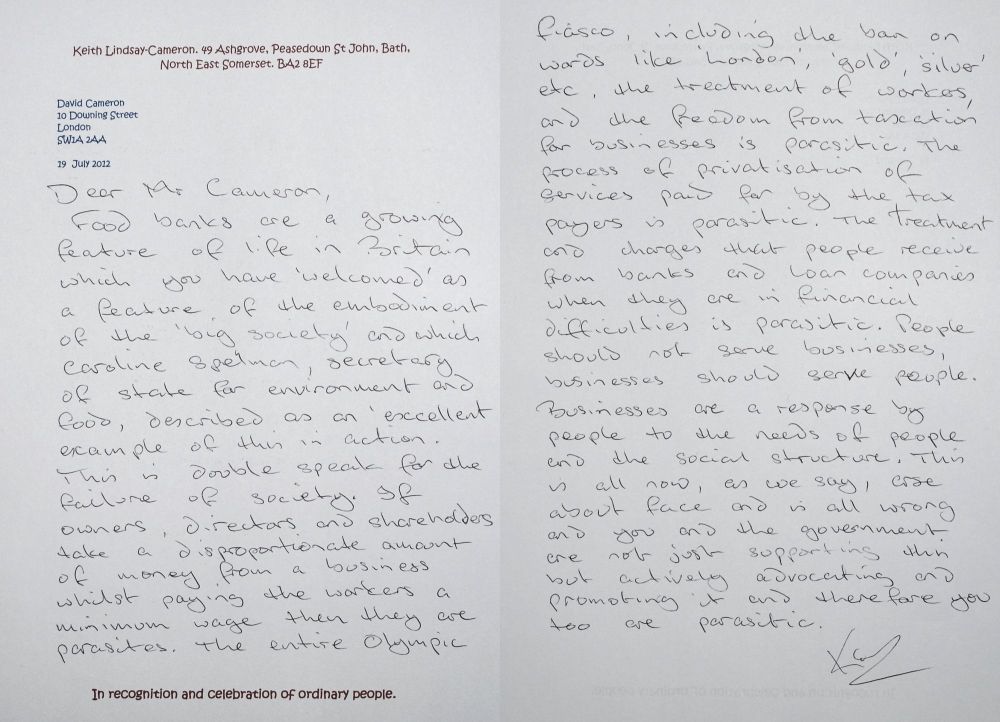 Keith Lindsay-Cameron. 49 Ashgrove, Peasedown St John, Bath,
North East Somerset. BA2 8EF
David Cameron
10 Downing Street
London
SW1A 2AA
19 July 2012
Dear Mr Cameron,
Food banks are a growing
feature of life in Britain
which you have 'welcomed' as
a feature of the embodiment
of the 'big society' and which
Caroline Spelman, secretary
of state for environment and
food, described as an 'excellent
example of this in action.
This is double speak for the
failure of society. If
owners, directors and shareholders
take a disproportionate amount
of money from a business
whilst paying the workers a
minimum wage then they are
parasites. The entire Olympic
In recognition and celebration of ordinary people.
fiasco, including the ban on
words like 'London', 'gold', 'silver'
etc, the treatment of workers,
and the freedom from taxation
for businesses is parasitic. The
process of privatisation of
services paid for by the tax
payers is parasitic. The treatment
and charges that people receive
from banks and loan companies
when they are in financial
difficulties is parasitic. People
should not serve businesses,
businesses should serve people.
Businesses are a response by
people to the needs of people
and the social structure. This
is all now, as we say, arse
about face and is all wrong
and you and the government
are not just supporting this
but actively advocating and
promoting it and therefore you
too are parasitic.